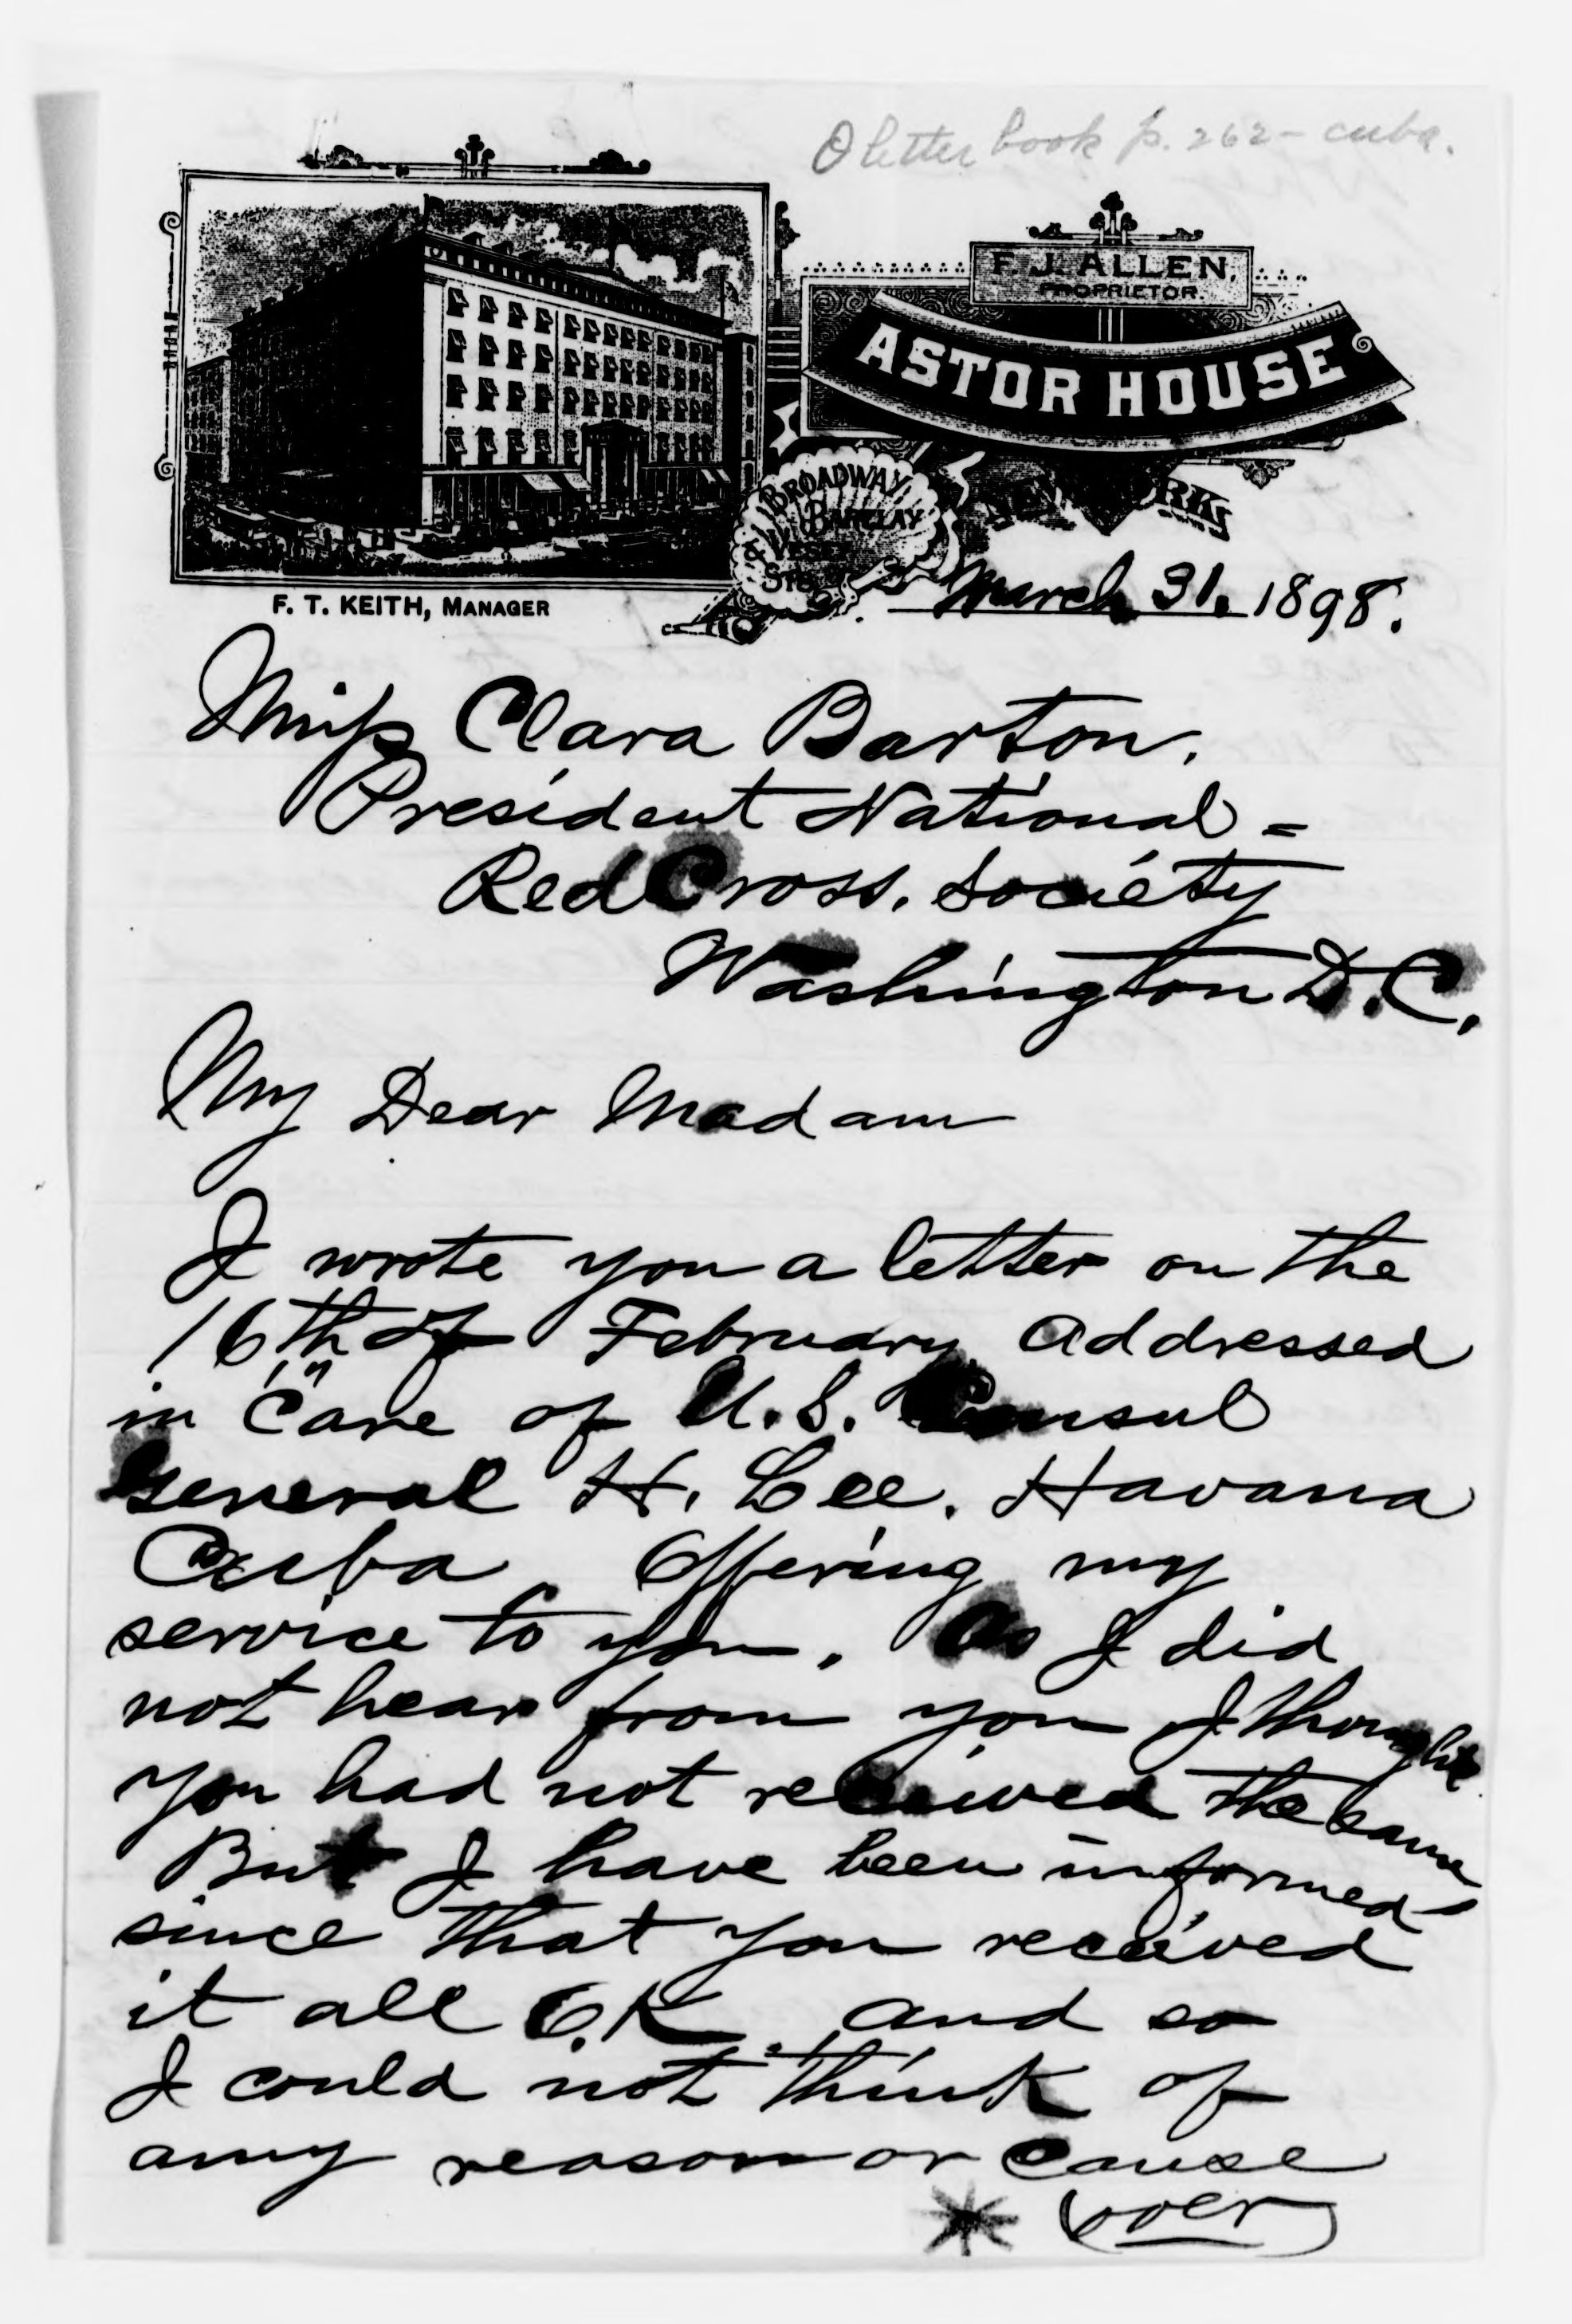 letter book p. 262 - Cuba.
F. J. ALLEN,
PROPRIETOR.
ASTOR HOUSE
BROADWAY
BARCLAY
& VESEY
STS
NEW YORK
F. T. KEITH, MANAGER
March 31. 1898.
Miss Clara Barton.
President National =
Red Cross. Society
Washington D.C.
My Dear Madam
I wrote you a letter on the
16th of February addressed
in "Care of U.S. Consul
General H. Lee. Havana
Cuba Offering my
service to you. As I did
not hear from you I thought
you had not received the same
But I have been informed
since that you received
it all O.K. and so
I could not think of
any reason or cause
(over)